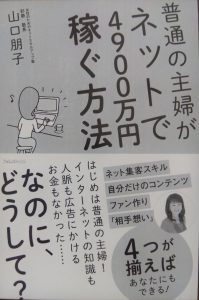 普通の主婦が
ネットで
4900万円
稼ぐ方法
山口朋子
フォレスト出版
はじめは普通の主婦!
インターネットの知識も
人脈も広告にかける
お金もなかった……
なのに、
どうして?
ネット集客スキル
自分だけのコンテンツ
ファン作り
「相手想い」
4つが
揃えば
あなたにも
できる!